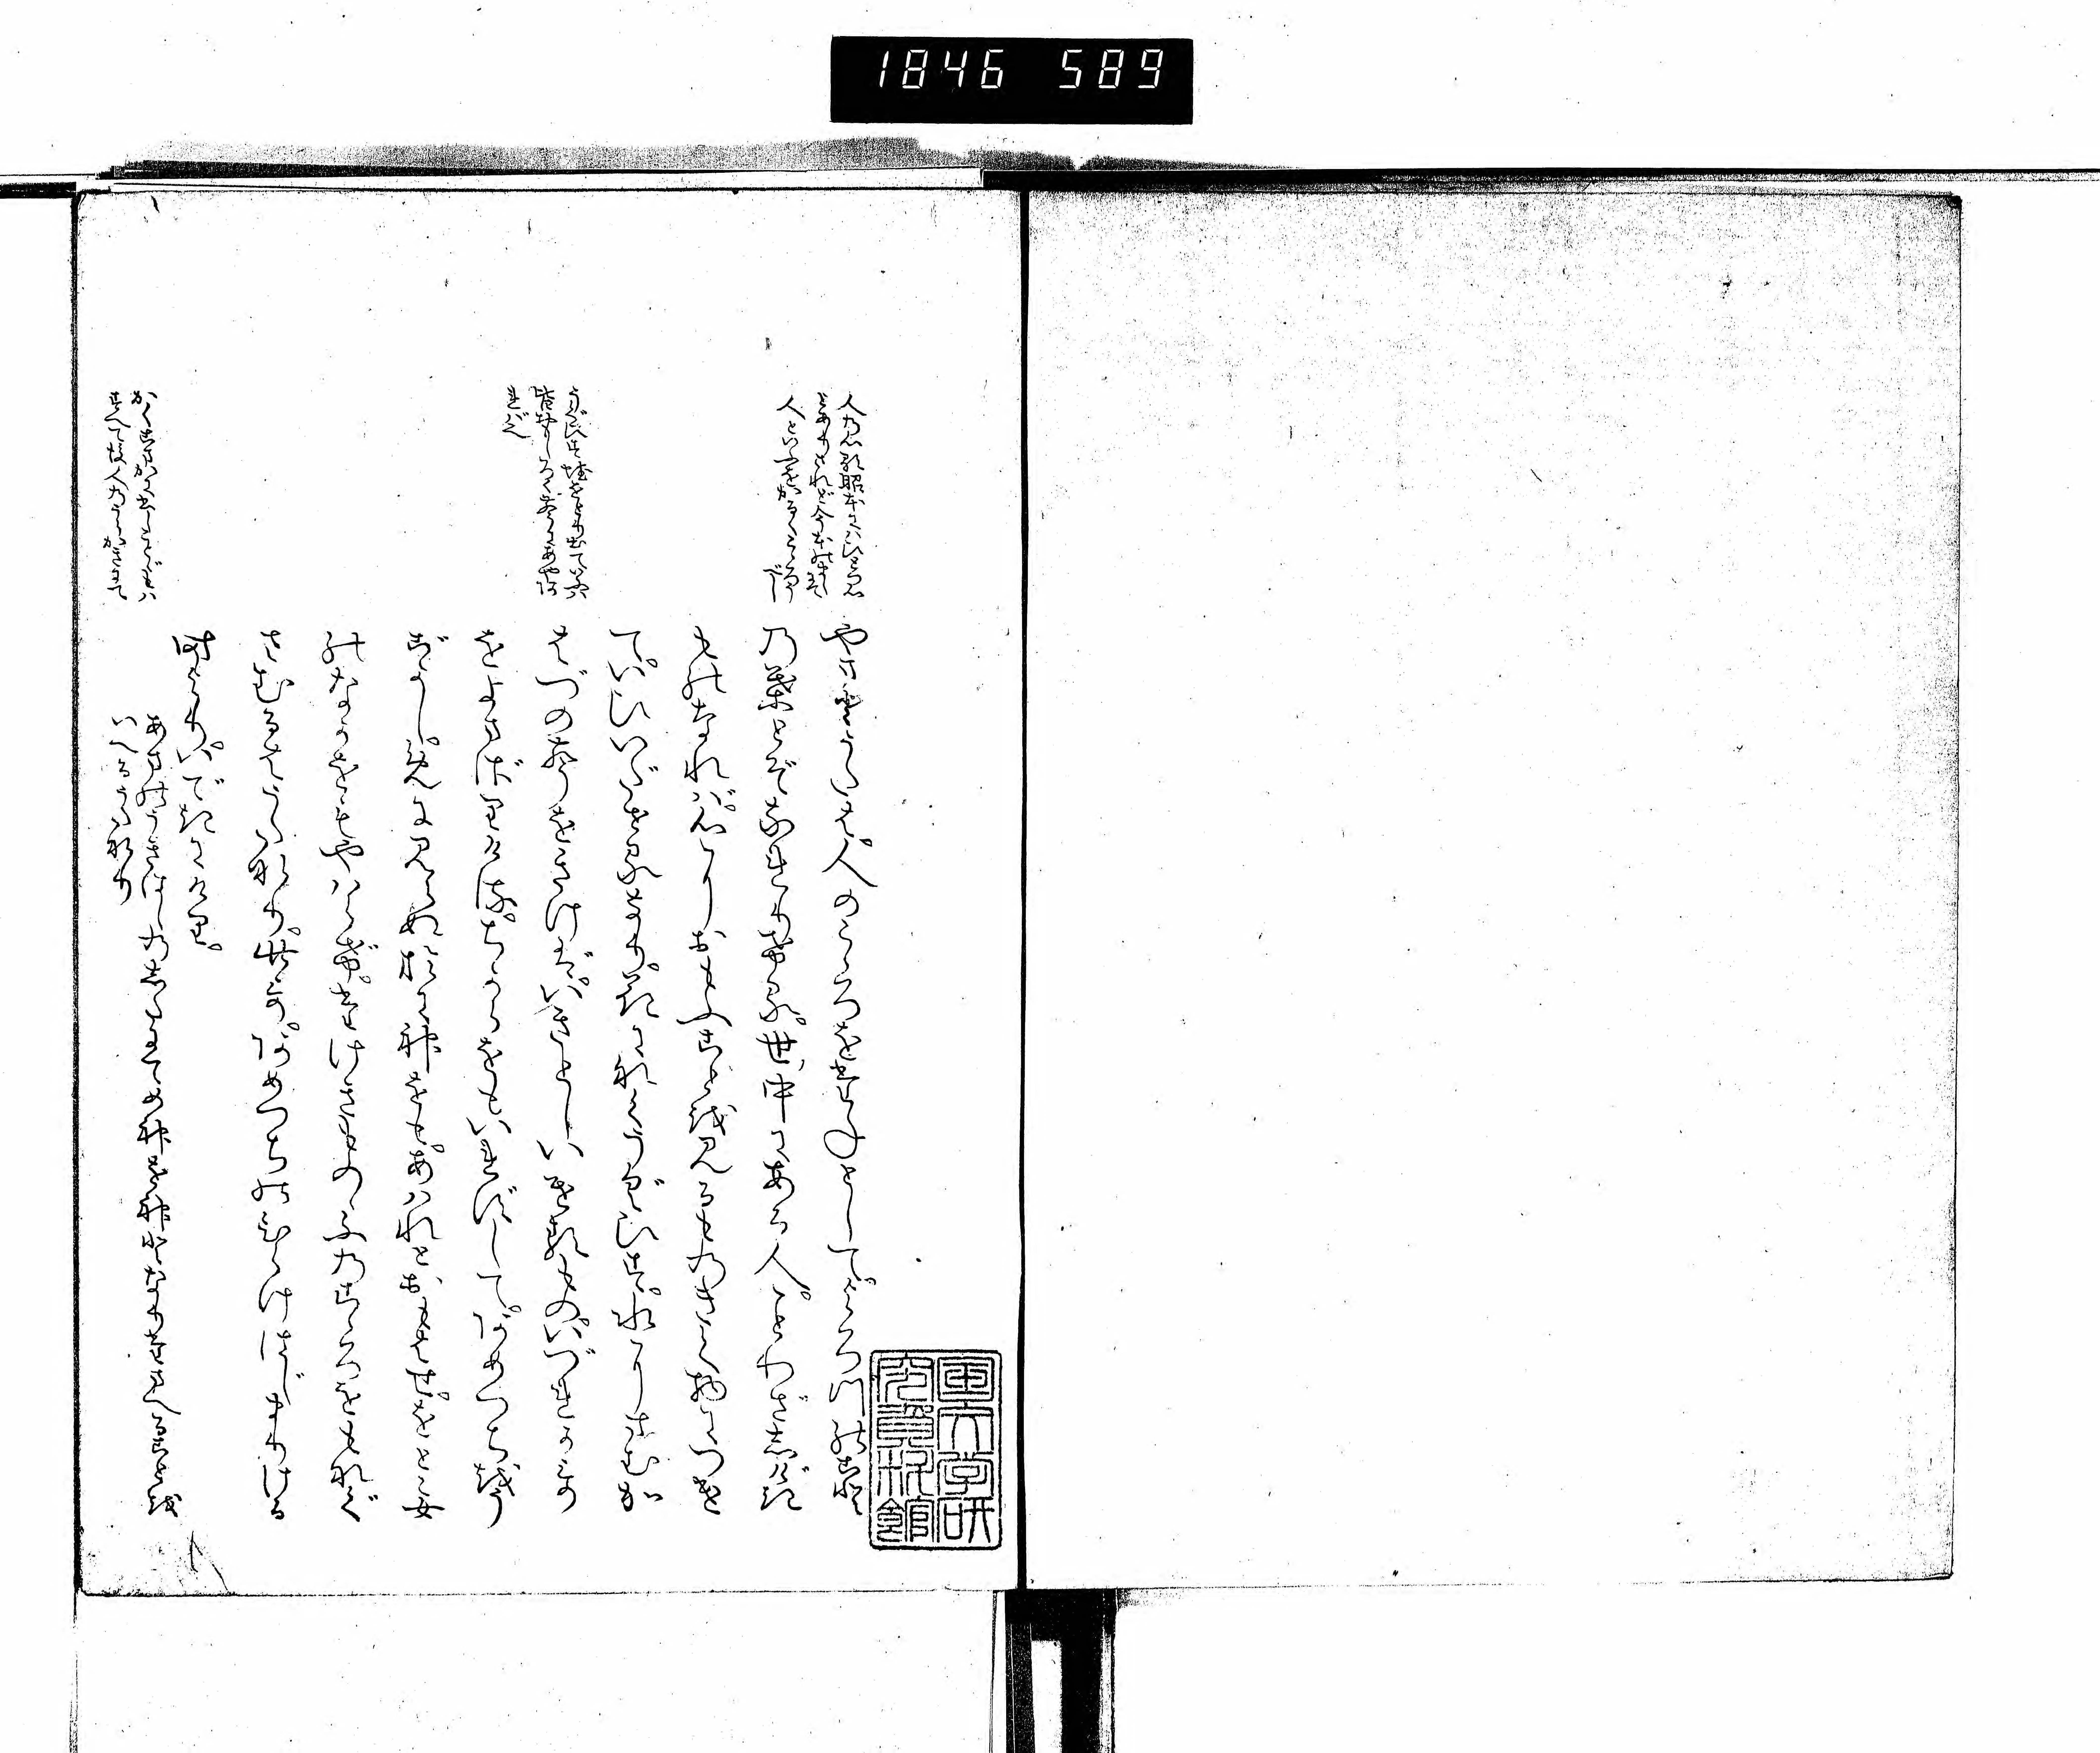 1846 589
やまとうたは。人のこゝろをたねとして。よろづのこと
の葉とぞなれりける。世中にある人。ことわざしげき
ものなれば。心におもふことを見るものきくものにつけ
ていひいだせるなり。花になくうぐひす。水にすむか
はづの声をきけば。いきとしいけるもの。いづれかうた
をよまざりける。ちからをもいれずして。あめつちをう
ごかし。めに見えぬおに神をも。あはれとおもはせ。をとこ女
のなかをもやはらげ。たけきものゝふのこゝろをもなぐ
さむるはうたなり。此うた。あめつちのひらけはじまりける
時より。いできにけり。
あまのうきはしのしたにてめ神を神となりたまへることを
いへるうたなり
国文学研
究資料館